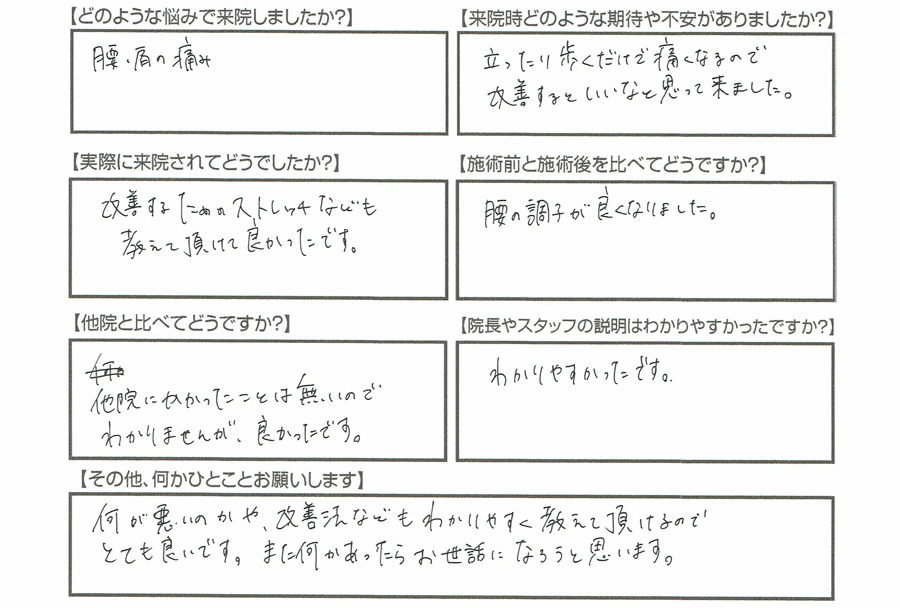 【どのような悩みで来院しましたか?】
腰、肩の痛み
【来院時どのような期待や不安がありましたか?】
立ったり歩くだけで痛くなるので
改善するといいなと思って来ました。
【実際に来院されてどうでしたか?】
改善するためのストレッチなども
教えて頂けて良かったです。
【施術前と施術後を比べてどうですか?】
腰の調子が良くなりました。
【他院と比べてどうですか?】
他院にかかったことは無いので
わかりませんが、良かったです。
【院長やスタッフの説明はわかりやすかったですか?】
わかりやすかったです。
【その他、何かひとことお願いします】
何が悪いのかや、改善法などもわかりやすく教えて頂けるので
とても良いです。また何かあったらお世話になろうと思います。